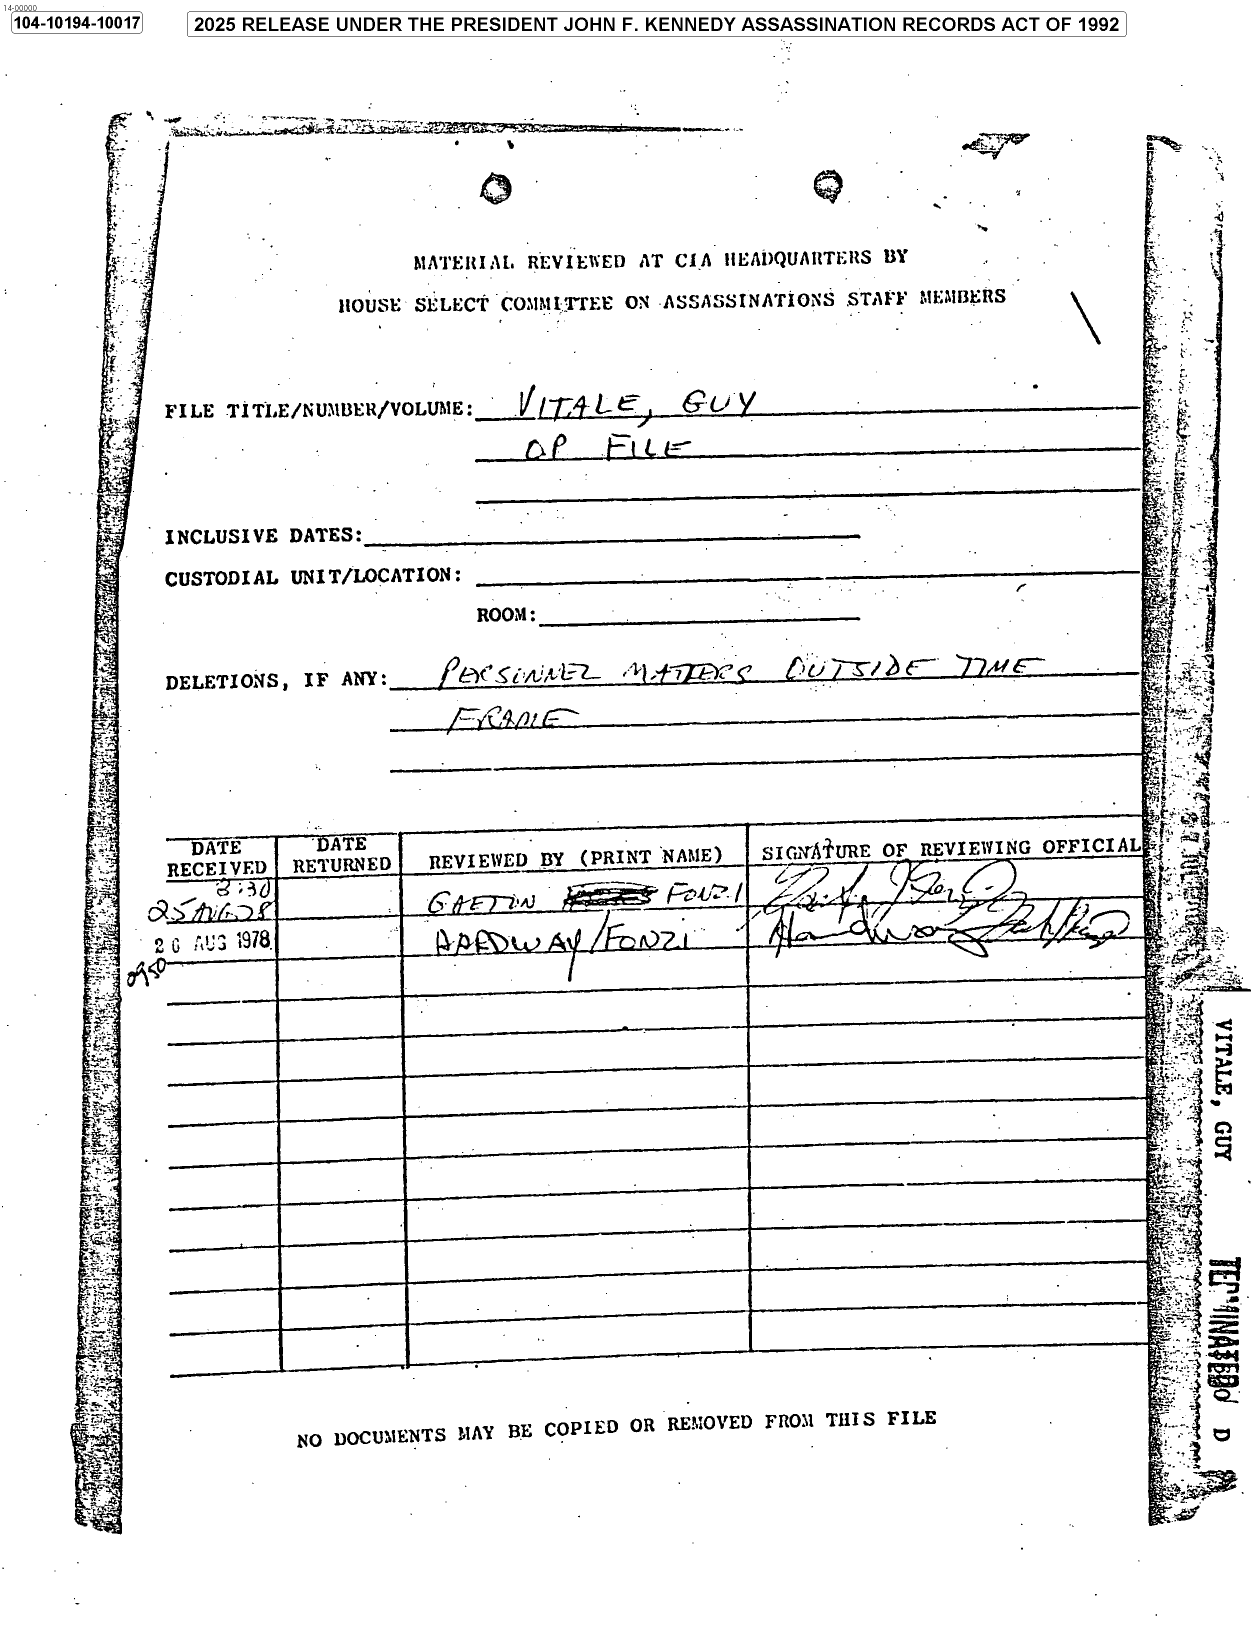 14-00000
104-10194-10017
2025 RELEASE UNDER THE PRESIDENT JOHN F. KENNEDY ASSASSINATION RECORDS ACT OF 1992
MATERIAL REVIEWED AT CIA HEADQUARTERS BY
HOUSE SELECT COMMITTEE ON ASSASSINATIONS STAFF MEMBERS
FILE TITLE/NUMBER/VOLUME: VITALE, GUY
OP FILE
INCLUSIVE DATES:
CUSTODIAL UNIT/LOCATION:
ROOM:
DELETIONS, IF ANY: PERSONNEL MATTERS OUTSIDE TIME
FRAME
DATE RECEIVED DATE RETURNED REVIEWED BY (PRINT NAME) SIGNATURE OF REVIEWING OFFICIAL
8:30
25 AUG 78 GAETON FONZI
26 AUG 1978 HARDWAY/FONZI
0950
NO DOCUMENTS MAY BE COPIED OR REMOVED FROM THIS FILE
VITALE, GUY
TERMINATED
D